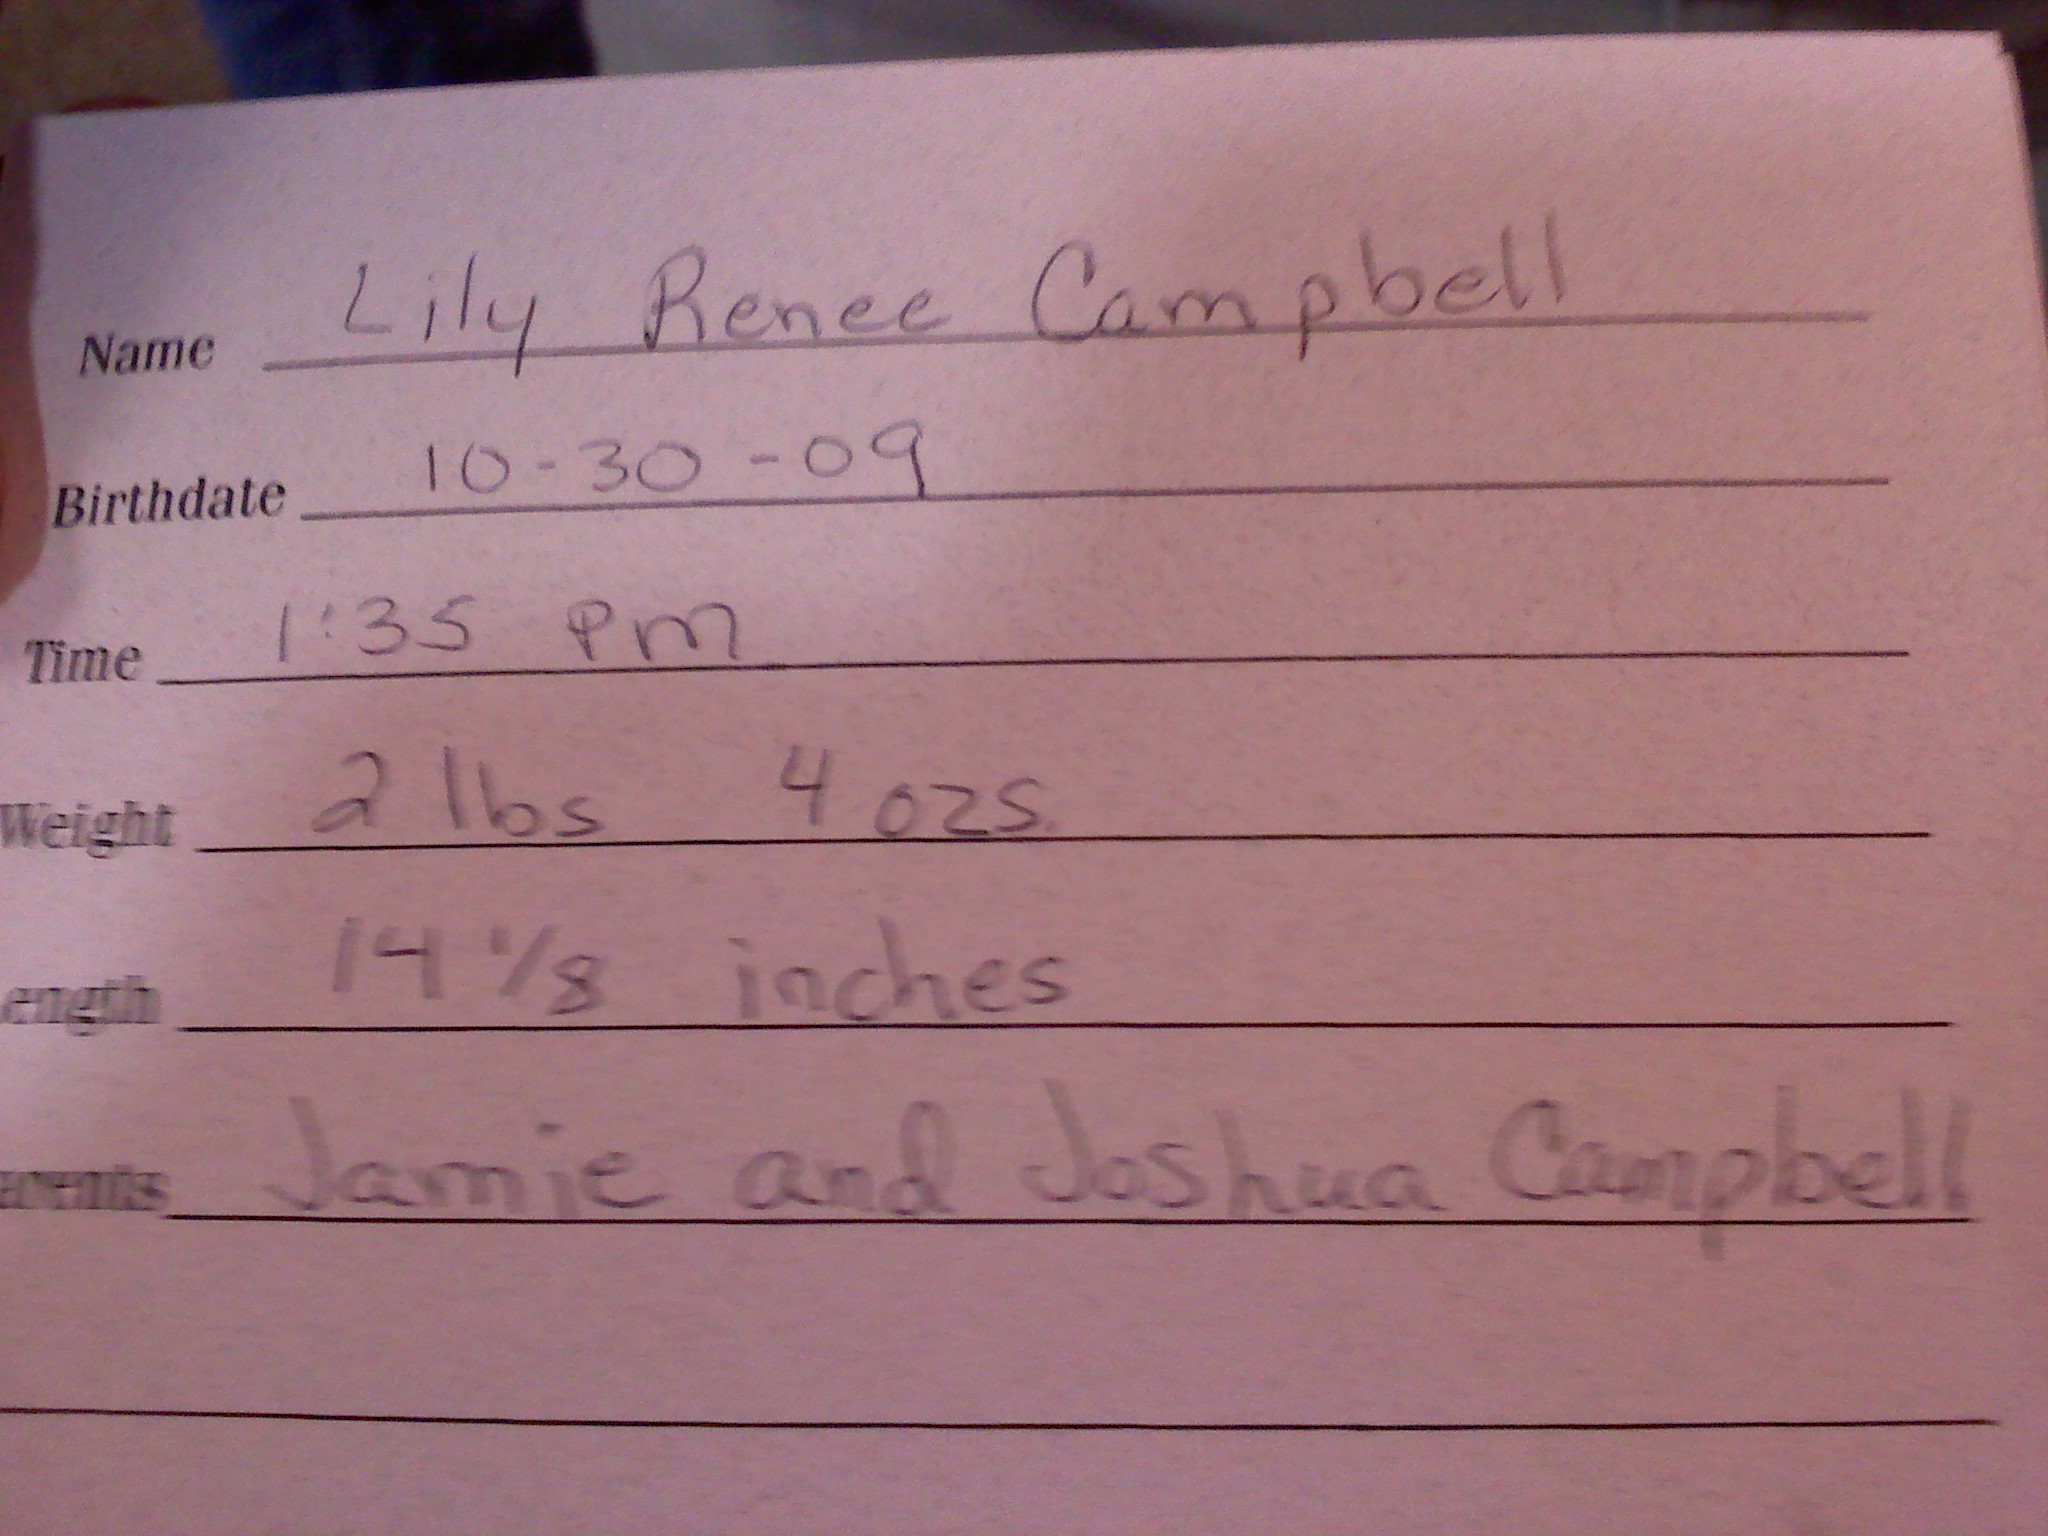 Name Lily Renee Campbell
Birthdate 10-30-09
Time 1:35 pm
Weight 2 lbs 4 ozs.
ength 14 1/8 inches
arents Jamie and Joshua Campbell